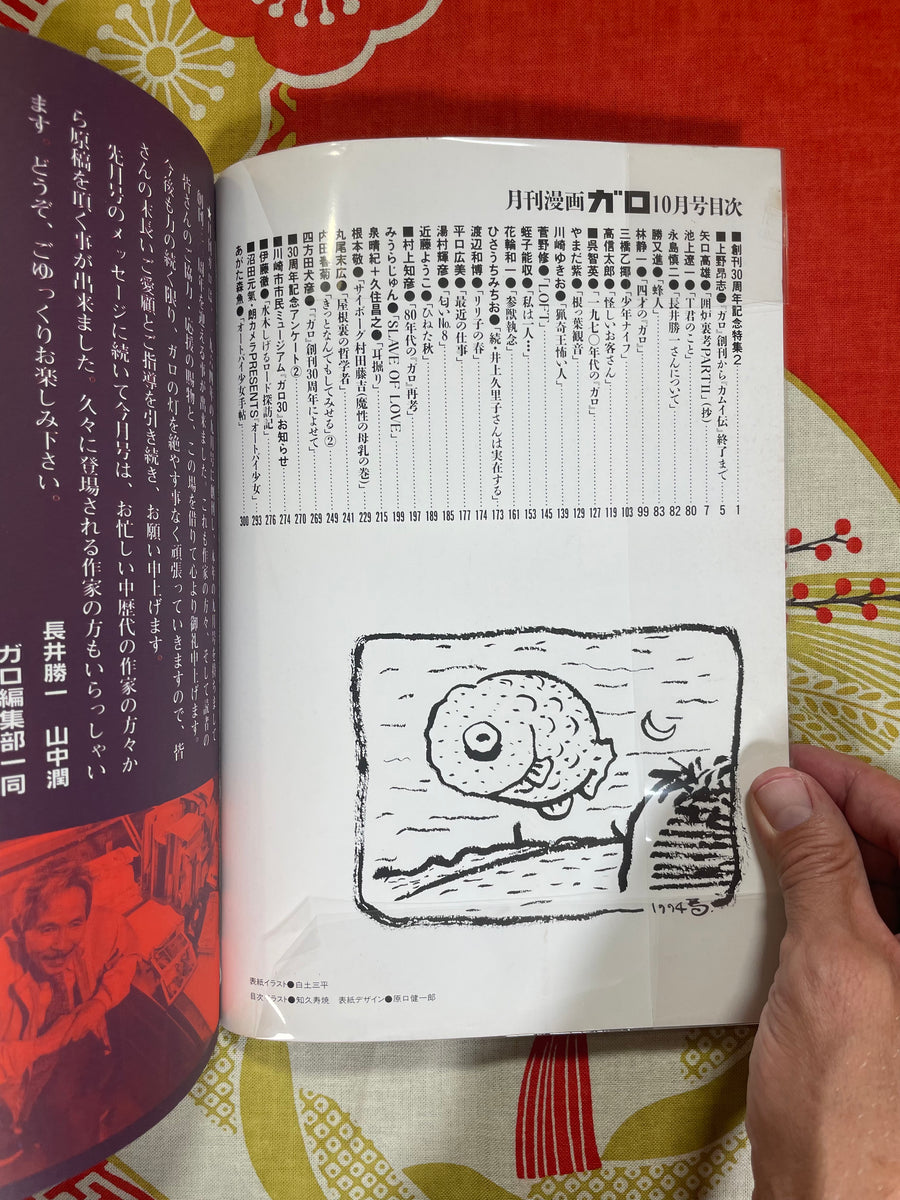 月刊漫画ガロ10月号目次
■創刊30周年記念特集2 1
■上野昂志●『ガロ』創刊から『カムイ伝』終了まで 5
矢口高雄●「囲炉裏考PARTⅡ」(抄) 7
池上遼一●「T君のこと」 80
永島慎二●「長井勝一さんについて」 82
勝又進●「蜂人」 83
林静一●「四才の『ガロ』」 99
三橋乙揶●「少年ナイフ」 103
高信太郎●「怪しいお客さん」 119
■呉智英●「一九七〇年代の『ガロ』」 127
やまだ紫●「根っ葉観音」 129
川崎ゆきお●「猟奇王怖い人」 139
菅野修●「LOFT」 145
蛭子能収●「私は一人…」 153
花輪和一●「参獣執念」 161
ひさうちみちお●「続・井上久里子さんは実在する」 173
渡辺和博●「リリ子の春」 174
平口広美●「最近の仕事」 177
湯村輝彦●「匂いNo.8」 185
近藤ようこ●「ひねた秋」 189
■村上知彦●「80年代の『ガロ』再考」 197
みうらじゅん●「SLAVE OF LOVE」 199
泉晴紀+久住昌之●「耳掘り」 215
根本敬●「サイボーグ村田藤吉(魔性の母乳の巻)」 229
丸尾末広●「屋根裏の哲学者」 241
内田春菊●「きっとなんでもしてみせる」② 249
四方田犬彦●「『ガロ』創刊30周年によせて」 269
■30周年記念アンケート② 270
■川崎市市民ミュージアム『ガロ30』お知らせ 274
■伊藤徹●「水木しげるロード探訪記」 276
■沼田元氣・朗カメラPRESENTS「オートバイ少女」 293
あがた森魚●「オートバイ少女手帖」 300
1994
表紙イラスト●白土三平
目次イラスト●知久寿焼 表紙デザイン●原口健一郎
皆さんのご協力・応援の賜物と、この場を借りて心より御礼申上げます。
今後も力の続く限り、ガロの灯を絶やす事なく頑張っていきますので、皆
さんの末長いご愛顧とご指導を引き続き、お願い申上げます。
先月号のメッセージに続いて今月号は、お忙しい中歴代の作家の方々か
ら原稿を頂く事が出来ました。久々に登場される作家の方もいらっしゃい
ます。どうぞ、ごゆっくりお楽しみ下さい。
長井勝一 山中潤
ガロ編集部一同